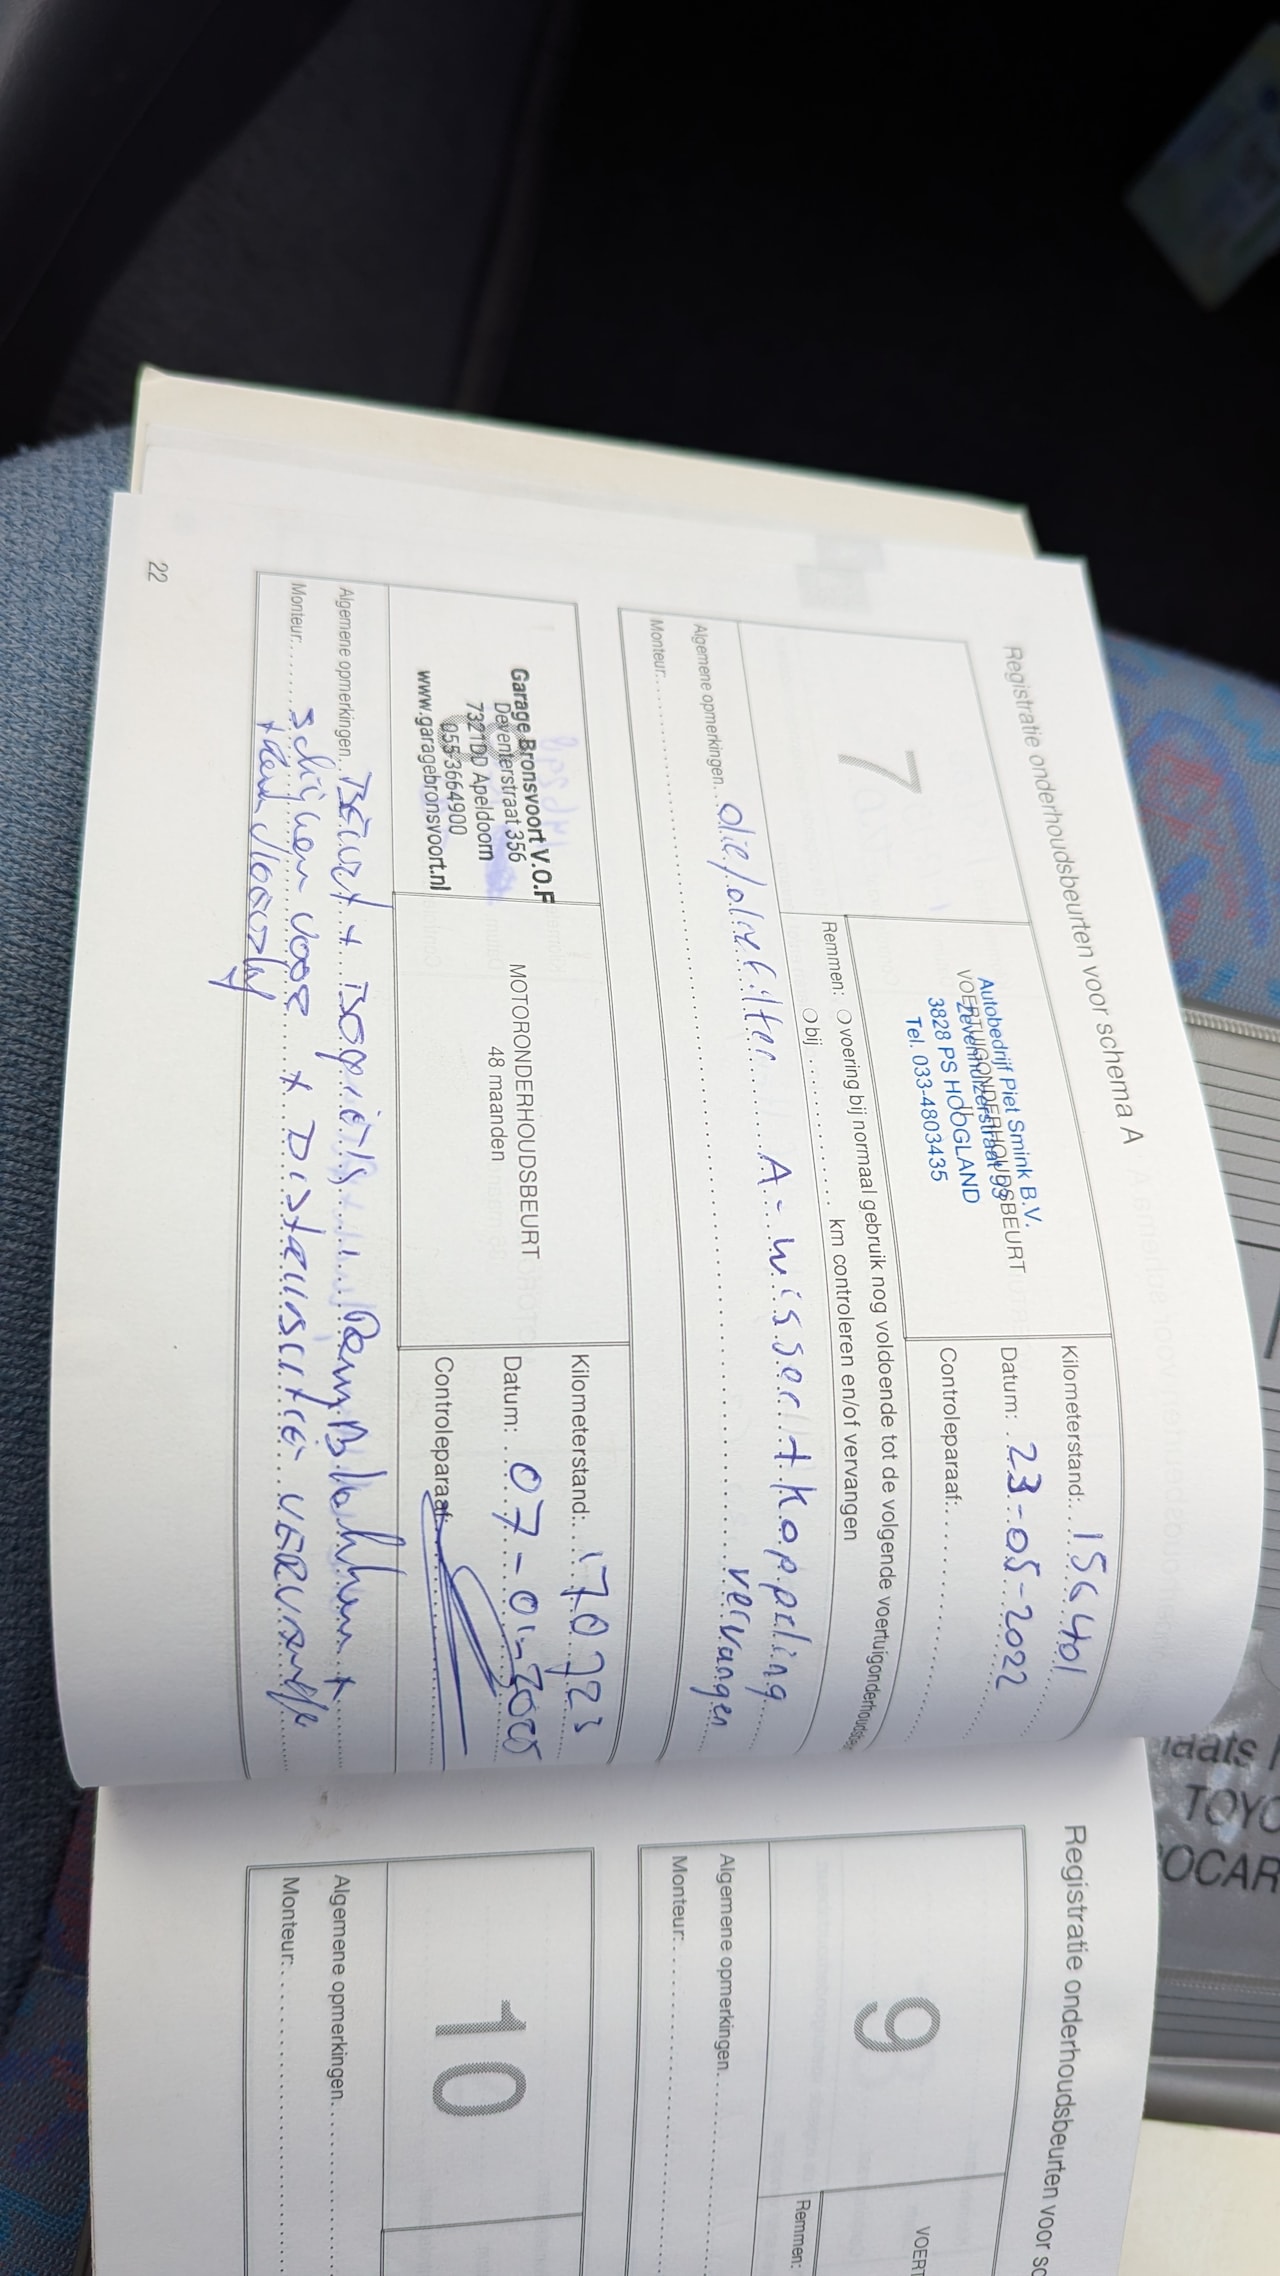 Registratie onderhoudsbeurten voor schema A
7
Autobedrijf Piet Smink B.V.
VOERTUIGONDERHOUDSBEURT
Zevenhuizerstraat 93
3828 PS HOOGLAND
Tel. 033-4803435
Kilometerstand: 156401
Datum: 23-05-2022
Controleparaaf:
Remmen: voering bij normaal gebruik nog voldoende tot de volgende voertuigonderhoudsbeurt
bij km controleren en/of vervangen
Algemene opmerkingen olie/oliefilter A-wisser + koppeling
vervangen
Monteur:
Garage Bronsvoort V.O.F
Deventerstraat 356
7321DD Apeldoorn
055-3664900
www.garagebronsvoort.nl
MOTORONDERHOUDSBEURT
48 maanden
Kilometerstand: 170723
Datum: 07-01-2025
Controleparaaf:
Algemene opmerkingen Beurt + Bougie's Remblokken +
Monteur: schijven voor + Distributie vervangen
22
Registratie onderhoudsbeurten voor sc
9
VOERT
Remmen:
Algemene opmerkingen
Monteur:
10
Algemene opmerkingen
Monteur:
laats
TOYO
OCAR